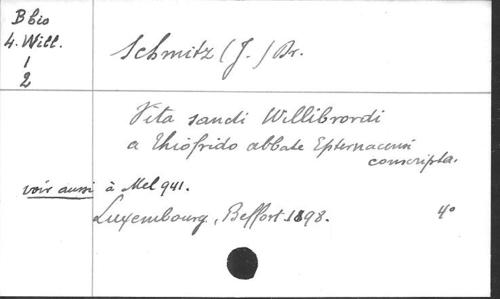 B bio
4. Will.
1
2
Schmitz (J.) Dr.
Vita sancti Willibrordi
a Thiofrido abbate Epternacensi
conscripta.
voir aussi à Mel 941.
Luxembourg, Beffort 1898. 4°